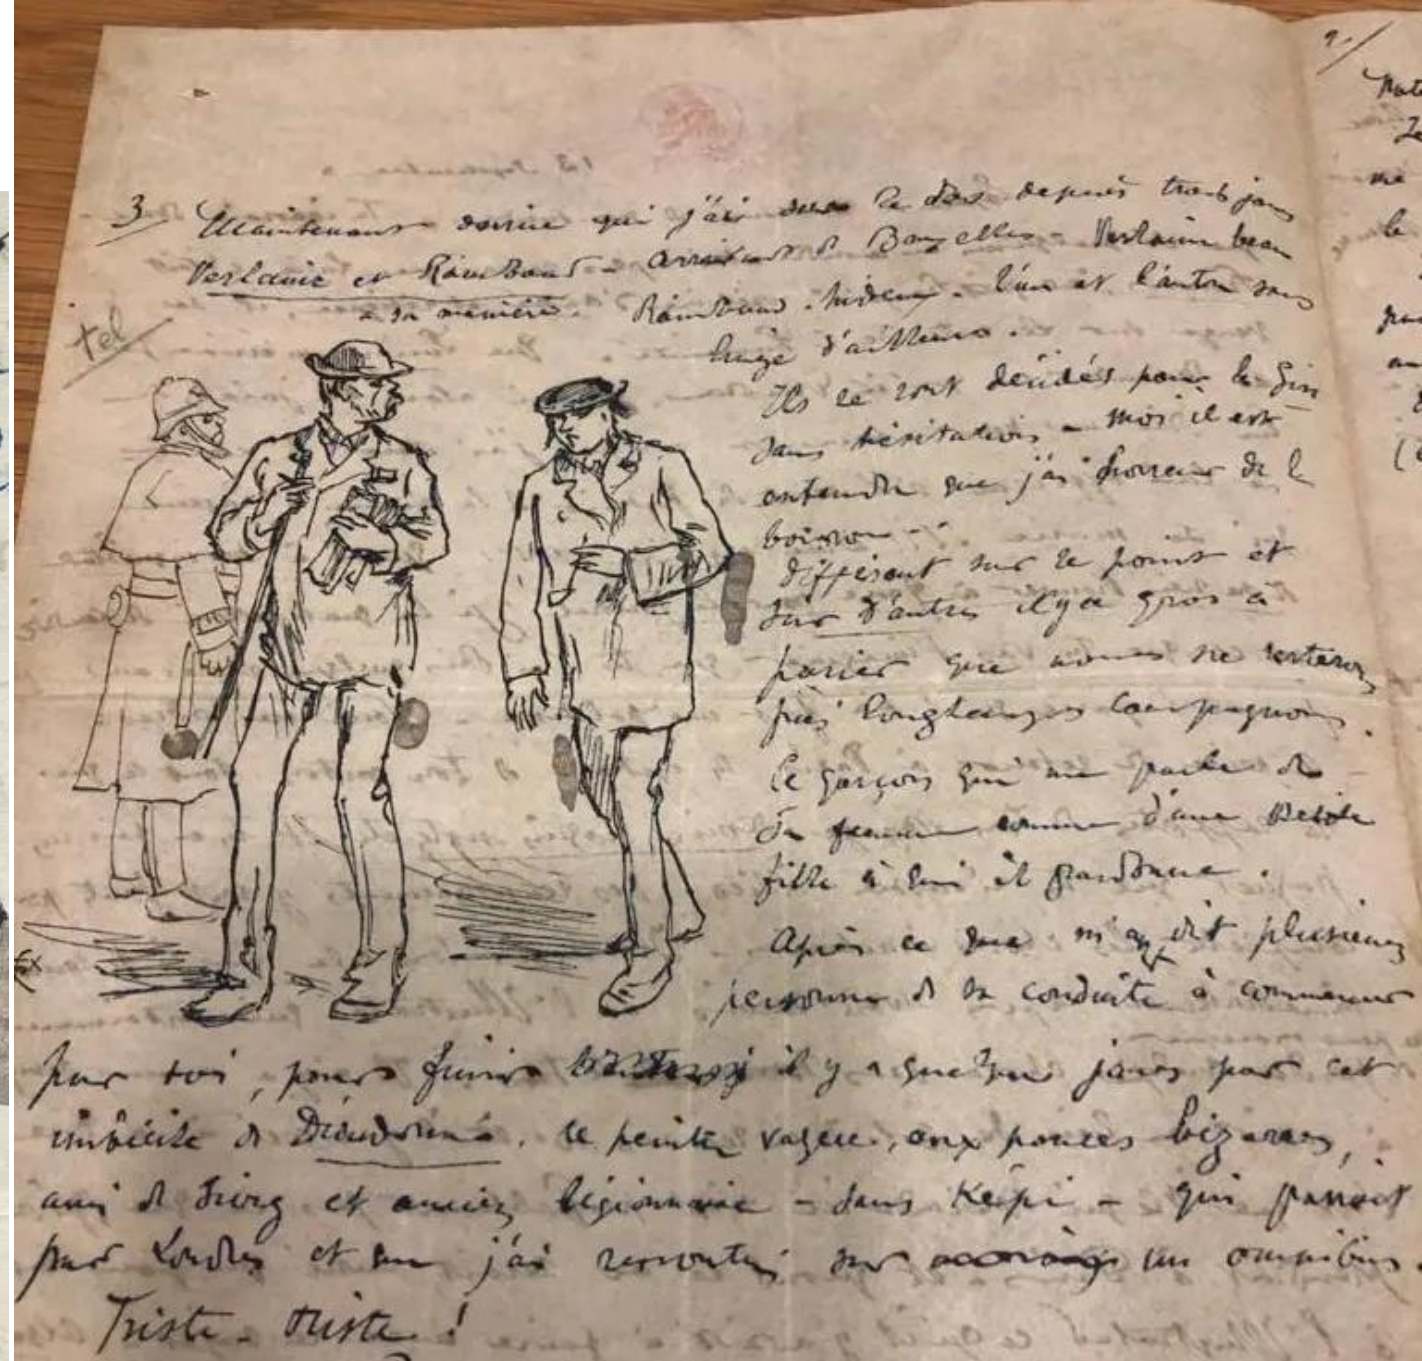 3 Maintenant devine qui j'ai sur le dos depuis trois jours
Verlaine et Rimbaud - arrivant de Bruxelles - Verlaine beau
à sa manière. Rimbaud, hideux. L'un et l'autre sans
linge d'ailleurs.
tel
Ils se sont décidés pour le gin
sans hésitation - moi il est
entendu que j'ai horreur de la
boisson -
différant sur ce point et
sur d'autres il y a gros à
parier que nous ne resterons
pas longtemps compagnons.
Ce garçon qui me parle de
sa femme comme d'une petite
fille à qui il pardonne.
Après ce que m'en dit plusieurs
personnes de sa conduite à commencer
par toi, pour finir il y a quelques jours par cet
imbécile de Dieudonné, le peintre vague, aux pouces bizarres,
ami de et ancien légionnaire - sans Képi - qui passait
par Londres et que j'ai rencontré sur un omnibus.
Triste - triste !
2/